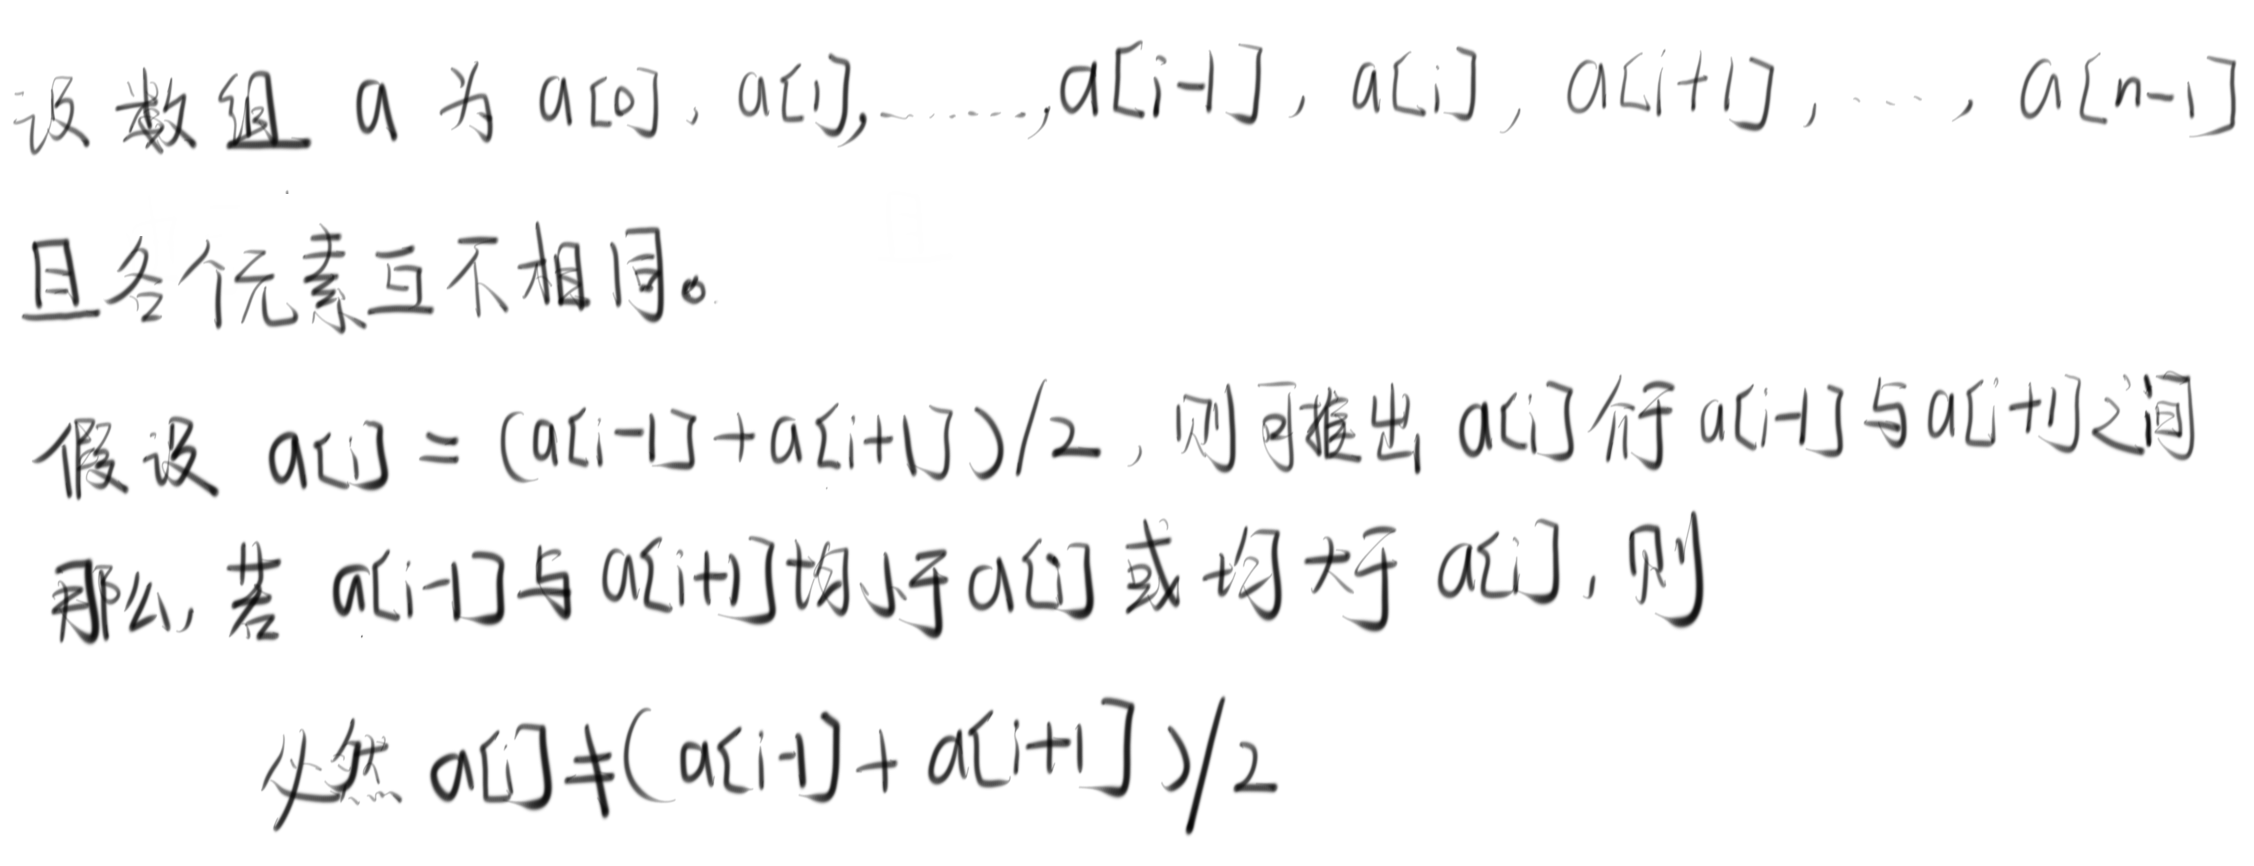 设数组 a 为 a[0], a[1], ......., a[i-1], a[i], a[i+1], ...., a[n-1]
且各个元素互不相同。
假设 a[i] = (a[i-1]+a[i+1])/2, 则可推出 a[i]介于a[i-1]与a[i+1]之间
那么, 若 a[i-1]与a[i+1]均小于a[i]或均大于a[i], 则
必然 a[i]≠(a[i-1]+a[i+1])/2